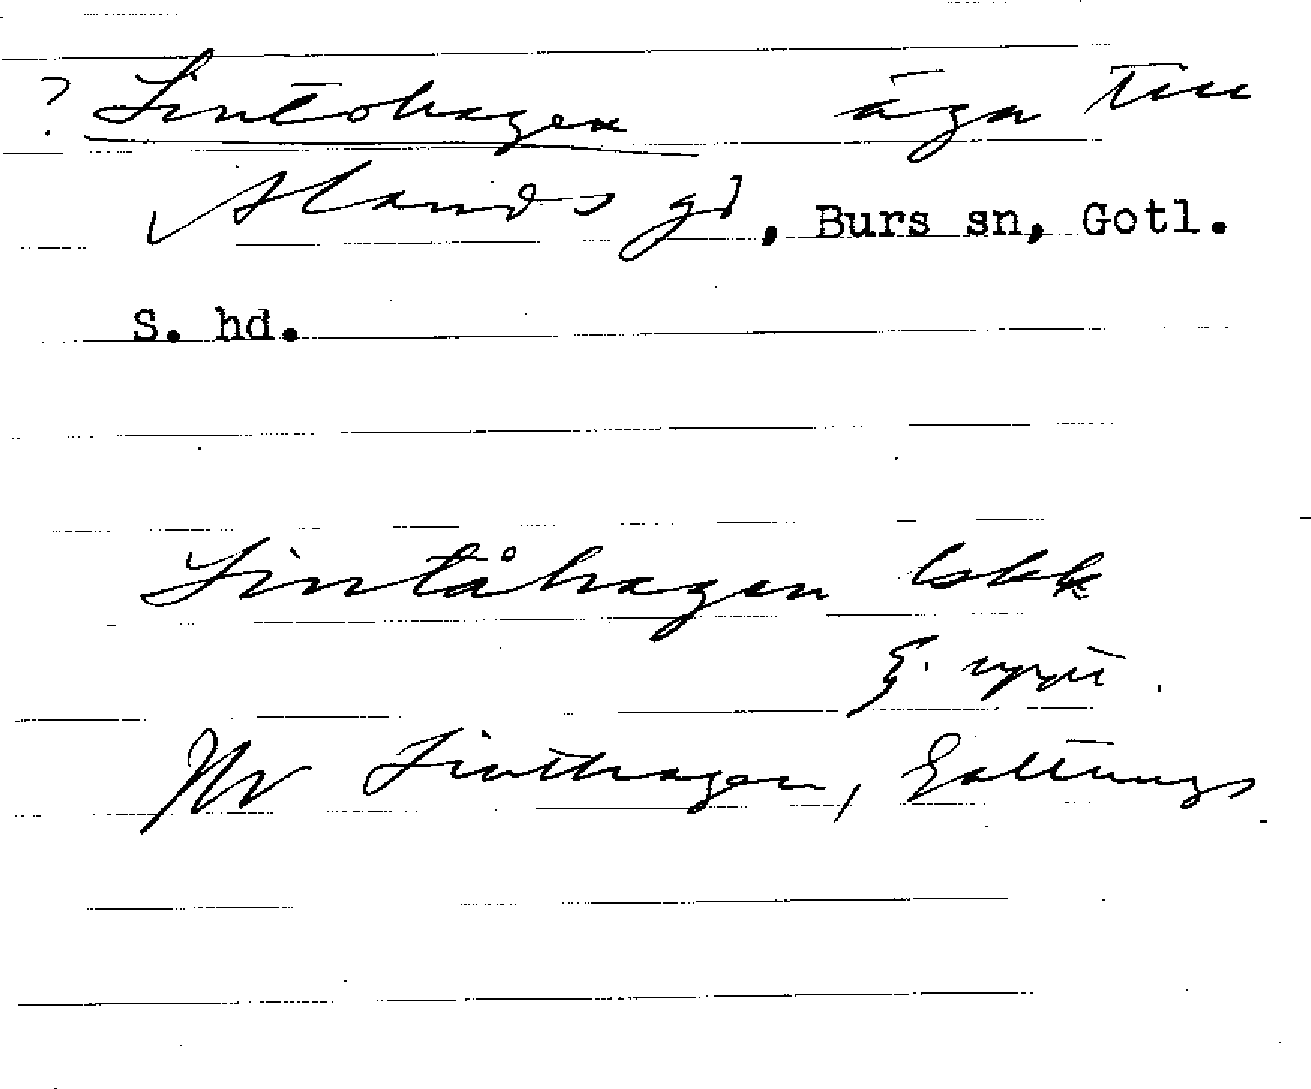 ? Sintohagen äga till
Alands gd, Burs sn, Gotl.
S. hd.
Sintåhagen lskk
Ej. uppt.
Jfr Sinthagen, Gattungs